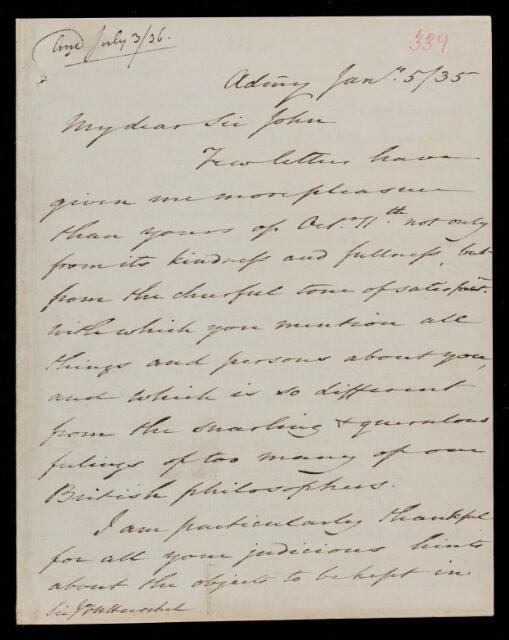 Ansd July 3/36.
339
Admy Jany. 5/35
My dear Sir John
Few letters have
given me more pleasure
than yours of Octr. 11th. not only
from its kindness and fullness, but
from the cheerful tone of satisfactn.
with which you mention all
things and persons about you,
and which is so different
from the snarling & querulous
felings of too many of our
British philosophers.
I am particularly thankful
for all your judicious hints
about the objects to be kept in
Sir J F W Herschel